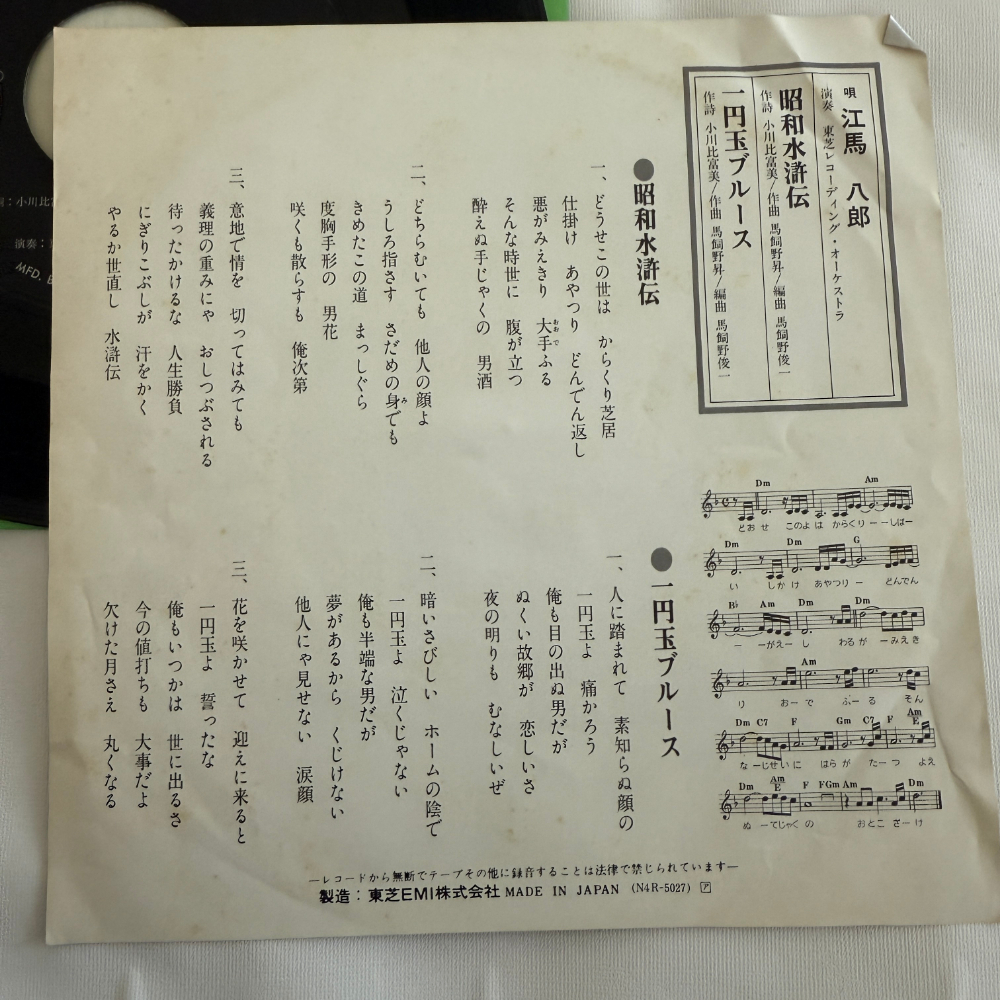 唄 江馬 八郎
演奏 東芝レコーディング・オーケストラ
昭和水滸伝
作詩 小川比富美/作曲 馬飼野昇/編曲 馬飼野俊一
一円玉ブルース
作詩 小川比富美/作曲 馬飼野昇/編曲 馬飼野俊一
●昭和水滸伝
一、どうせこの世は からくり芝居
仕掛け あやつり どんでん返し
悪がみえきり 大手ふる
おおで
そんな時世に 腹が立つ
酔えぬ手じゃくの 男酒
二、どちらむいても 他人の顔よ
うしろ指さす さだめの身でも
み
きめたこの道 まっしぐら
度胸手形の 男花
咲くも散らすも 俺次第
三、意地で情を 切ってはみても
義理の重みにゃ おしつぶされる
待ったかけるな 人生勝負
にぎりこぶしが 汗をかく
やるか世直し 水滸伝
●一円玉ブルース
一、人に踏まれて 素知らぬ顔の
一円玉よ 痛かろう
俺も目の出ぬ男だが
ぬくい故郷が 恋しいさ
夜の明りも むなしいぜ
二、暗いさびしい ホームの陰で
一円玉よ 泣くじゃない
俺も半端な男だが
夢があるから くじけない
他人にゃ見せない 涙顔
三、花を咲かせて 迎えに来ると
一円玉よ 誓ったな
俺もいつかは 世に出るさ
今の値打ちも 大事だよ
欠けた月さえ 丸くなる
Dm Am
どおせ このよは からくりーーしばー
Dm Dm G
い しかけ あやつりー どんでん
B♭ Am Dm Dm
ーーがえーし わるがーみえき
Am
り おーで ふーる そん
Dm C7 F Gm C7 F Am E
なーじせいに はらが たーつ よえ
Dm Am E F FGm Am Dm
ぬーてじゃくの おとこ ざーけ
―レコードから無断でテープその他に録音することは法律で禁じられています―
製造：東芝EMI株式会社 MADE IN JAPAN (N4R-5027) ア
：小川比富
演奏：
MFD. B